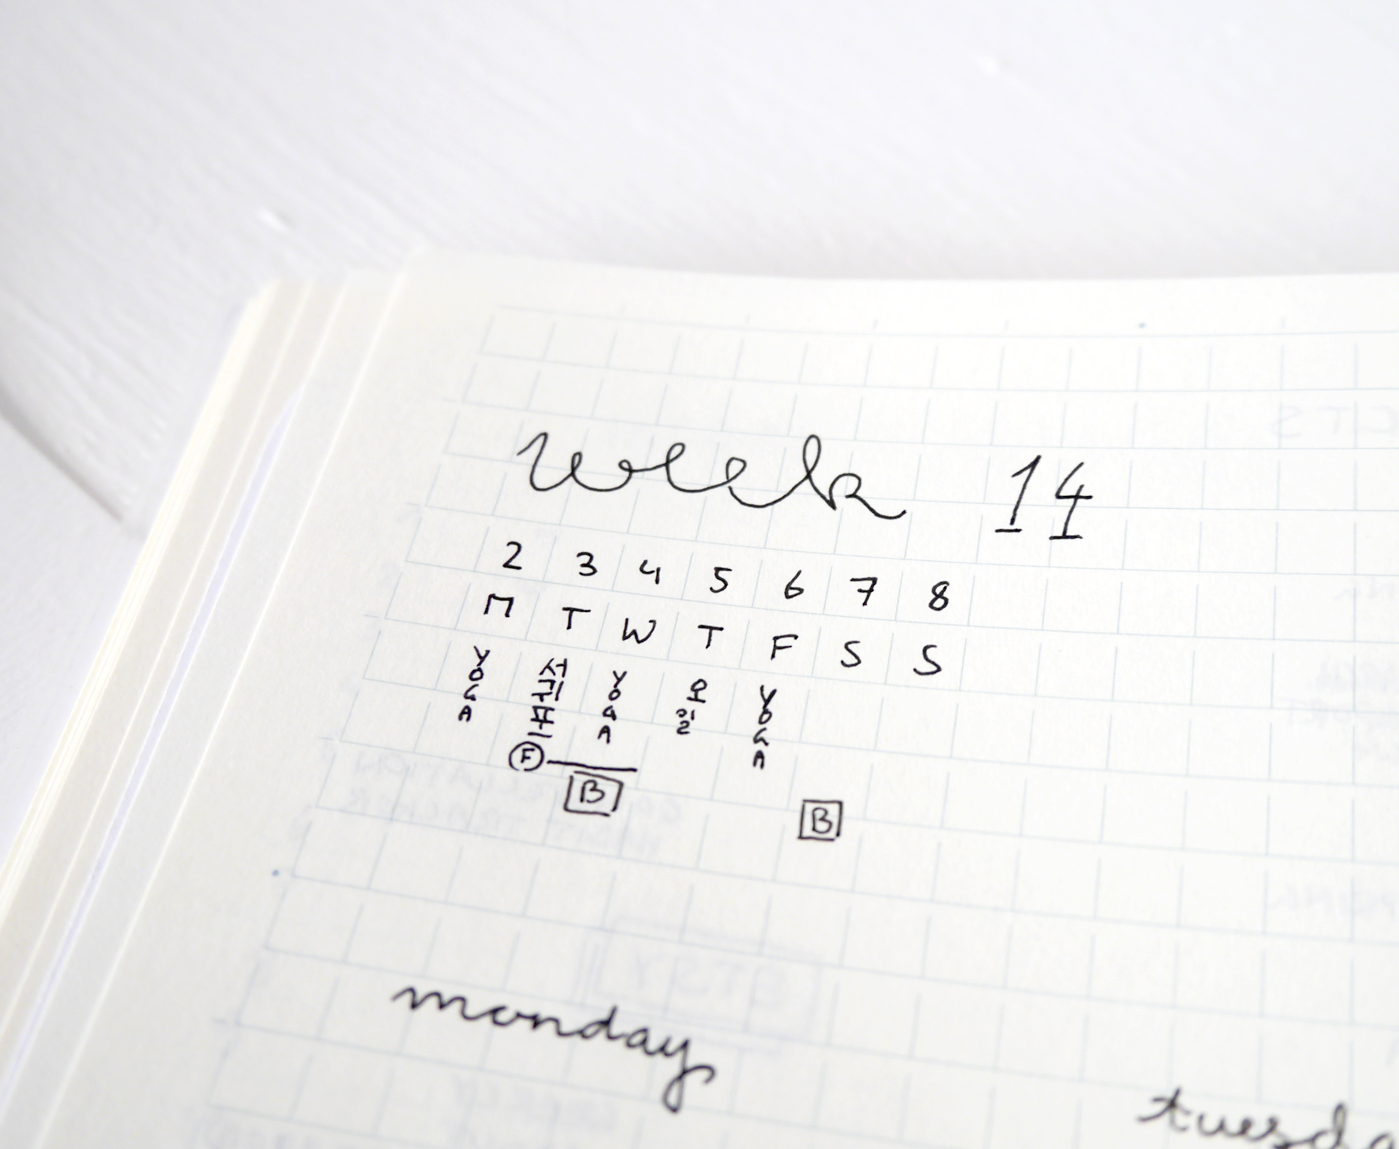 week 14
2 3 4 5 6 7 8
M T W T F S S
YOGA YOGA 오일 YOGA
F
B B
monday
tuesda